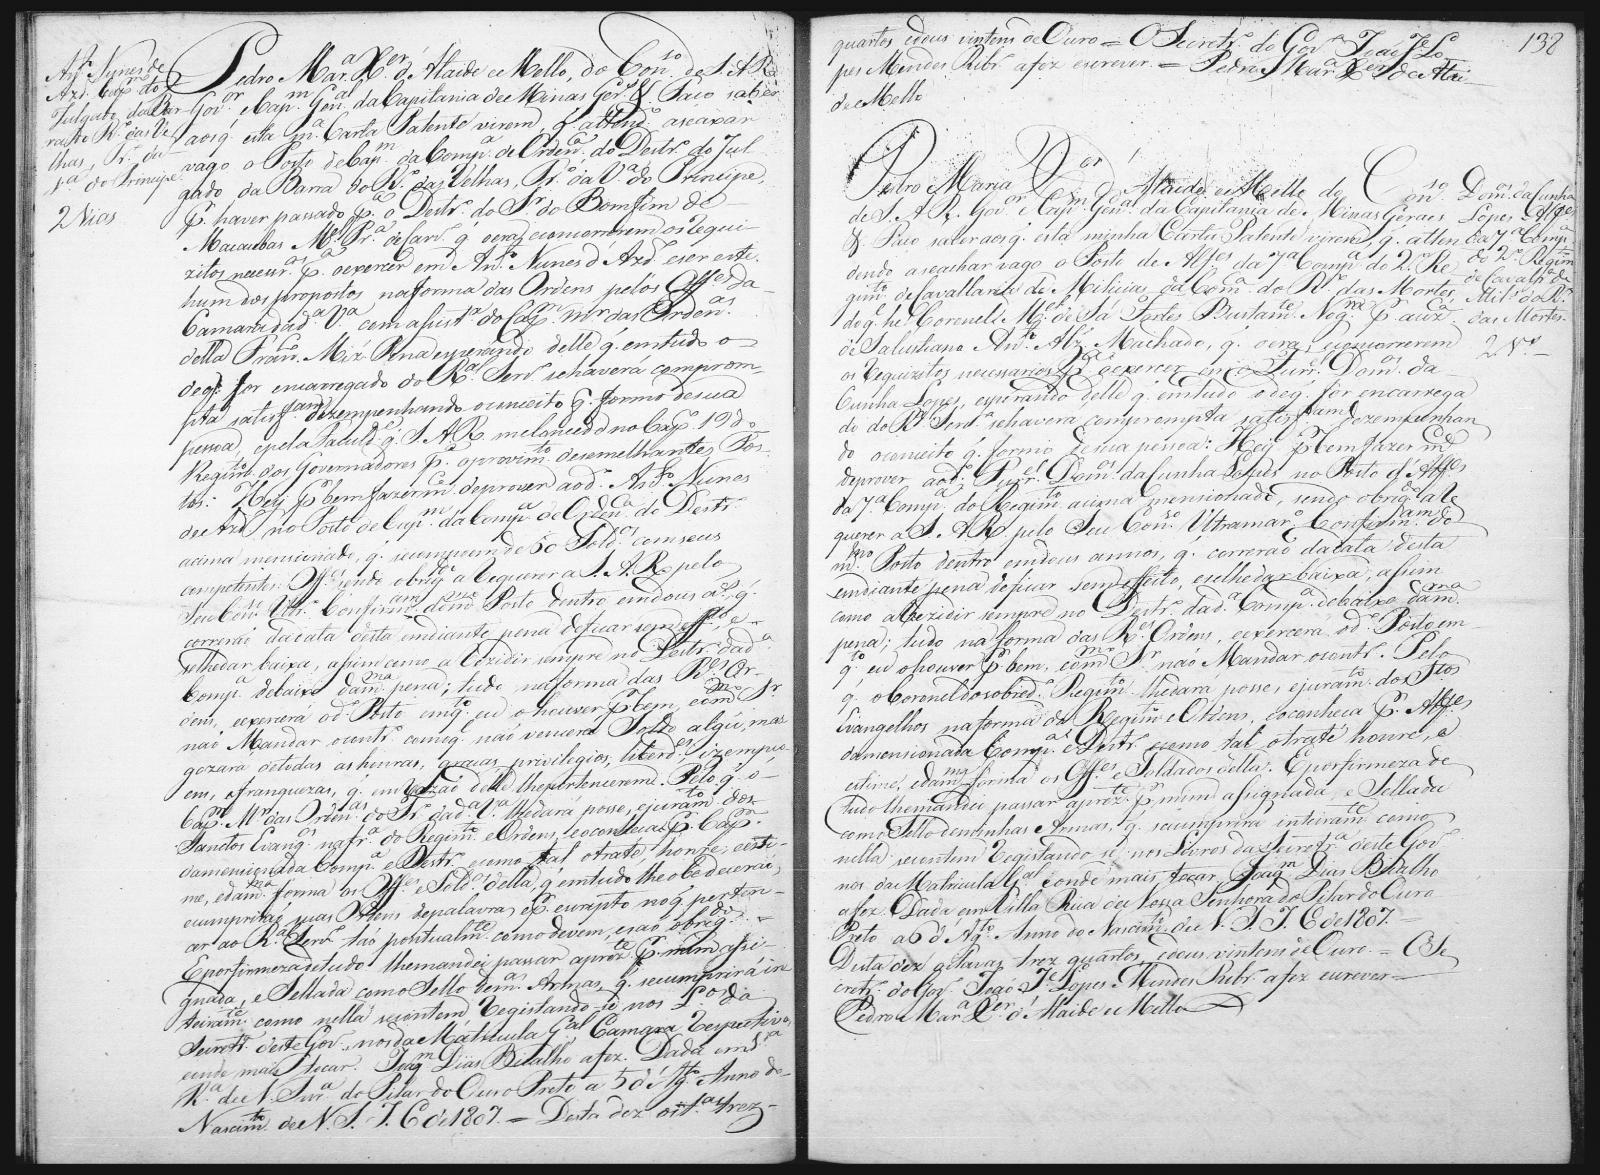 Anto. Nunes de
Azdo. Capm. do
Julgado da Bar-
ra do Ro. das Ve
lhas, Tr. da
Va. do Principe
2 Vias
Pedro Mara. Xer. d'Ataide e Mello, do Conso. de S. A. R.
Govor. e Capm. Genal. da Capitania de Minas Gers. &. Faço saber
aos q. esta ma. Carta Patente virem, q. attendo. a se axar
vago o Posto de Capm. da Compa. de Ordença. do Destro. do Jul
gado da Barra do Ro. das Velhas, Tro. da Va. do Principe,
p. haver passado pa. o Destro. do Sr. do Bomfim de
Macaubas Mel. Pra. de Carvo. q. vera, e concorrerem os requi-
zitos necesros. pa. o exercer em Anto. Nunes d' Azdo. e ser este
hum dos propostos, na forma das Ordens pelos Offes. da
Camara da da. Va. com assista. do Capm. mor das Ordenas.
della Franco.
de q. for encarregado do Ral. Servo. se haverá com prom-
pta satisfam. dezempenhando o conceito q. formo de sua
pessoa, e pela Faculde. q. S. A. R. me concede no Capo. 19 do
Regimto. dos Governadores pa. o provimto. de semelhantes Pos-
tos: Hey p. bem fazer mce. de prover ao do. Anto. Nunes
de Azdo. no Posto de Capm. da Compa. de Ordença. do Destro.
acima mencionado, q. se compoem de 60 Soldos. com seus
competentes Offes. sendo obrigdo. a requerer a S. A. R. pelo
Seu Conso. Ultro. Confirmam. do mmo. Posto dentro em dous ans. q.
correrão da data desta em diante pena de ficar sem effto. e
se lhe dar baixa, assim como a rezidir sempre no Destro. da da.
Compa. debaixo da mma. pena; tudo na forma das Res. Or-
dens, e exercerá o do. Posto emqto. eu o houver p. bem, e o mmo. Sr.
não Mandar o contro. com o q. não vencerá Soldo algũ, mas
gozará de todas as honras, graças privilegios, liberdes. izempço-
ens, e franquezas, q. em razão delle lhe pertencerem. Pelo q. o
Capm. Mor das Ordenas. do Tro. da da. Va. lhe dará posse, e juramto. dos
Sanctos Evangos. na fra. do Regimto. e Ordens, e o conheça p. Capm.
da mencionada Compa. e Destro. e como tal o trate, honre, e esti-
me, e da mma. forma os Offes. e Soldos. della, q. em tudo lhe obedecerão,
e cumprirão suas Ordens de palavra, e p. escripto no q. perten-
cer ao Ral. Servo. tão pontualmte. como devem, e são obrigdos.
E por firmeza de tudo lhe mandei passar a prezte. p. mim assi-
gnada, e Sellada com o Sello de mas. Armas, q. se cumprirá in
teiramte. como nella se contem Registando-se nos Los. da
Secreta. deste Govo., nos da Matricula Gal. Camara respectiva,
e onde mais tocar. Joaqm. Dias Bitalho a fez. Dada em Va.
Ra. de N. Snra. do Pilar do Ouro Preto a 5 d' Agto. Anno do
Nascimto. de N. S. J. C. de 1807. = Desta dez oitas. trez
138
quartos e dous vintens de Ouro = O Secretro. do Govo. João Je. Lo
pes Mendes Ribro. a fez escrever. = Pedro Mara. Xer. de Atai
de e Mello
Pedro Maria Xer. d'Ataide e Mello do Conso.
de S. A. R. Govor. e Capm. Genal. da Capitania de Minas Geraes
&. Faço saber aos q. esta minha Carta Patente virem, q. atten
dendo a se achar vago o Posto de Alfes. da 7a. Compa. do 2o. Re
gimto. de Cavallaria de Milicias da Comca. do Ro. das Mortes,
do q. he Coronel Mel. de Sá Fortes Bustamte. Noga. p. auza.
de Salustiano Anto. Alz. Machado, q. o era, e concorrerem
os requizitos necessarios pa. o exercer em o Furrel. Domos. da
Cunha Lopes, esperando delle q. em tudo o de q. for encarrega
do do Ral. Servo. se haverá com prompta satisfam. dezempenhan
do o conceito q. formo de sua pessoa: Hey p. bem fazer mce.
de prover ao do. Furrel. Domos. da Cunha Lopes no Posto d' Alfes.
da 7a. Compa. do Regimto. acima mencionado, sendo obrigdo. a re
querer a S. A. R. pelo Seu Conso. Ultramaro. Confirmam. do
mmo. Posto dentro em dous annos, q. correrão da data desta
em diante pena de ficar sem effeito, e se lhe dar baixa, assim
como a rezidir sempre no Destro. da da. Compa. debaixo da mma.
pena; tudo na forma das Res. Ordens, e exercerá o do. Posto em-
qto. eu o houver p. bem, e o mmo. Sr. não Mandar o contro. Pelo
q. o Coronel do sobredo. Regimto. lhe dará posse, e juramto. dos Stos.
Evangelhos na forma do Regimto. e Ordens, e o conheça p. Alfes.
da mencionada Compa. e Destro. e como tal o trate honre, e
estime, e da mma. forma os Offes. e Soldados della. E por firmeza de
tudo lhe mandei passar a prezte. p. mim assignada, e Sellada
com o Sello de minhas Armas, q. se cumprirá inteiramte. como
nella se contem Registando-se nos Livros da Secreta. deste Govo.
nos da Matricula Gal. e onde mais tocar. Joaqm. Dias Bitalho
a fez. Dada em Villa Rica de Nossa Senhora do Pilar do Ouro
Preto a 6 d' Agto. Anno do Nascimto. de N. S. J. C. de 1807 =
Desta dez oitavas trez quartos, e dous vintens de Ouro = O Se
cretro. do Govo. João Je. Lopes Mendes Ribro. a fez escrever =
Pedro Mara. Xer. d' Ataide e Mello
Domos. da Cunha
Lopes Alfes.
da 7a. Compa.
do 2o. Regimto.
de Cavala. de
Mila. do Ro.
das Mortes.
2 Vs.